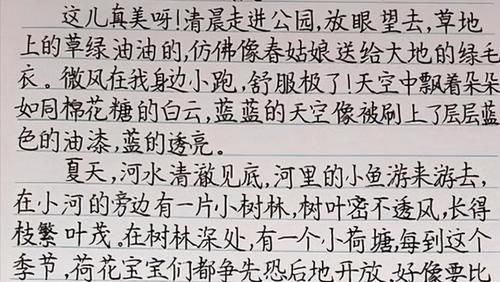 这儿真美呀!清晨走进公园,放眼望去,草地
上的草绿油油的,仿佛像春姑娘送给大地的绿毛
衣。微风在我身边小跑,舒服极了!天空中飘着朵朵
如同棉花糖的白云,蓝蓝的天空像被刷上了层层蓝
色的油漆,蓝的透亮。
夏天,河水清澈见底,河里的小鱼游来游去,
在小河的旁边有一片小树林,树叶密不透风,长得
枝繁叶茂。在树林深处,有一个小荷塘,每到这个
季节,荷花宝宝们都争先恐后地开放,好像要比